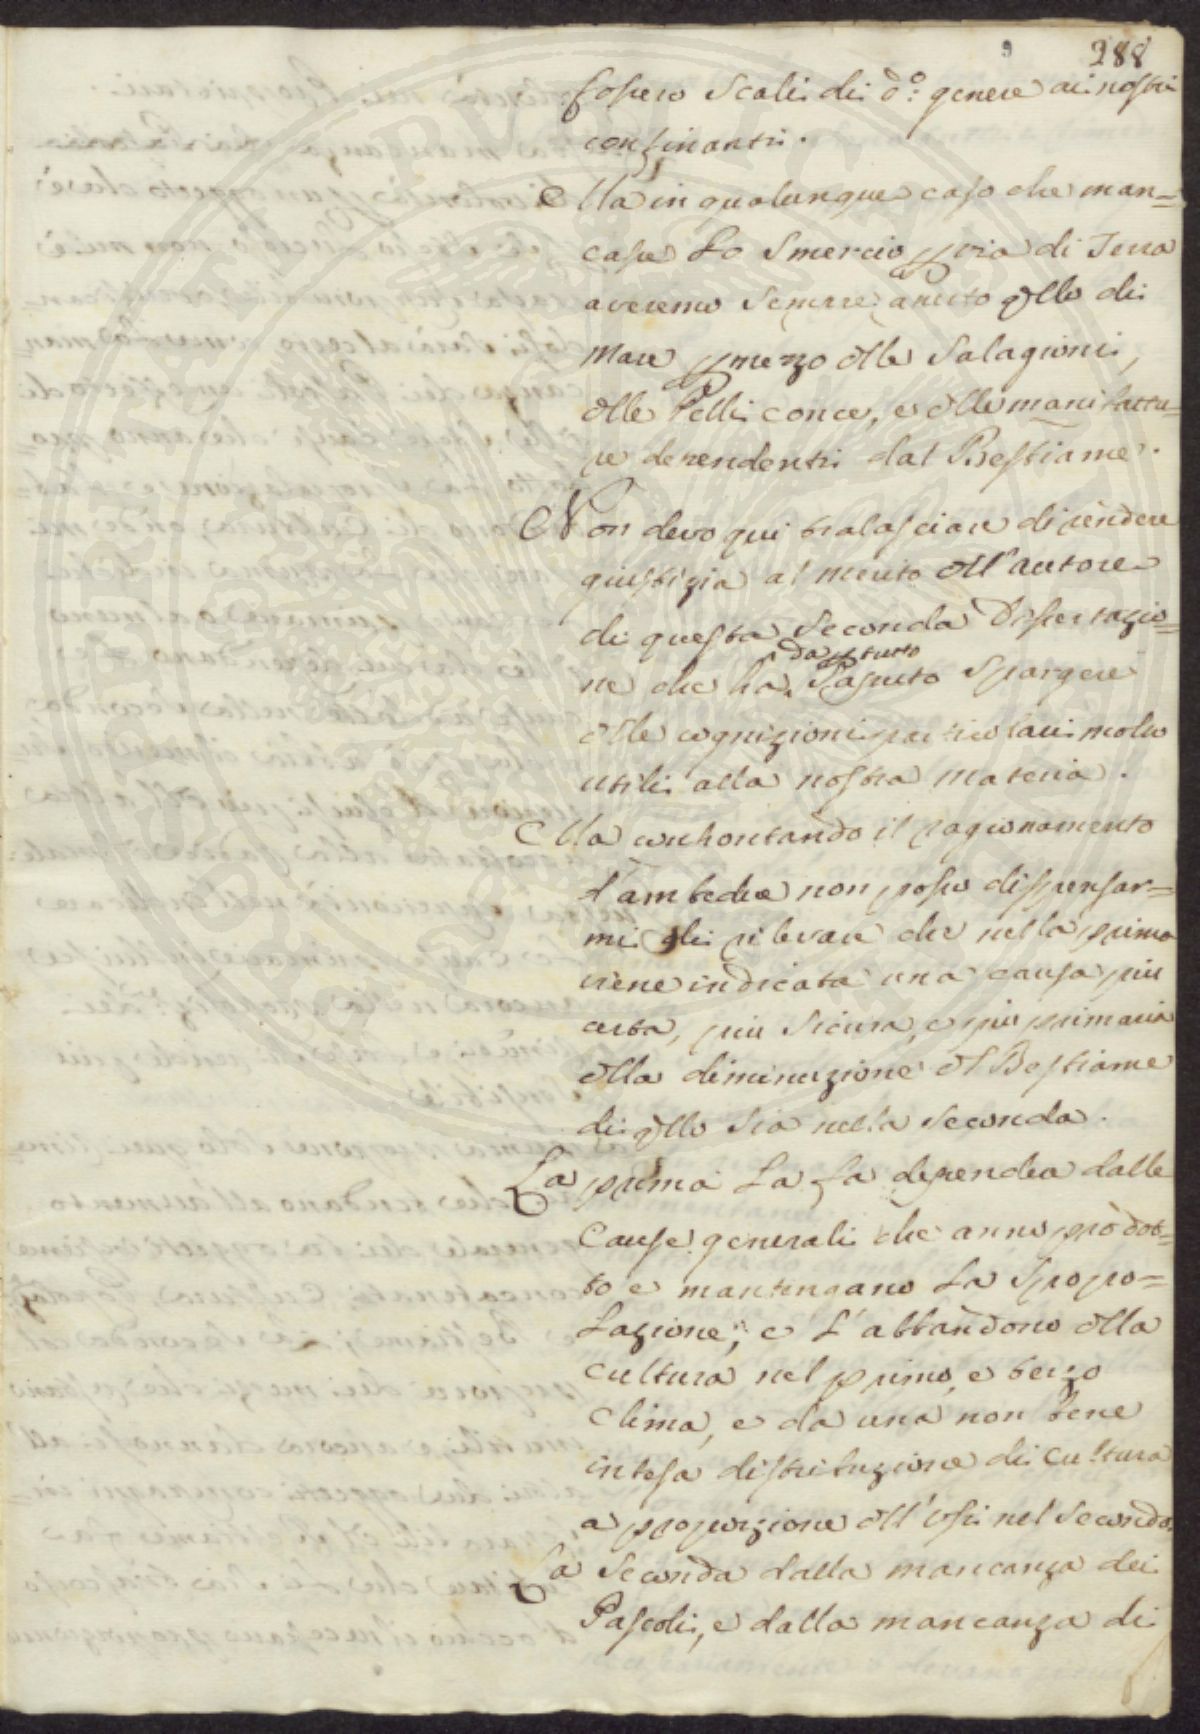 288
fossero Scali di d.º genere ai nostri
confinanti.
Ma in qualunque caso che man=
casse Lo Smercio p via di Terra
averemo sempre aperto qllo di
Mare p mezzo dlle Salagioni,
dlle Pelli conce, e dlle manifattu=
re dependenti dal Bestiame.
Non devo qui tralasciare di rendere
giustizia al merito dll'autore
di questa Seconda Dissertazio=
da p tutto
ne che hà Saputo Spargere
dlle cognizioni particolari molto
utili alla nostra materia.
Ma confrontando il ragionamento
d'ambedue non posso dispensar=
mi di rilevare che nella prima
viene indicata una causa più
certa, più Sicura, e più primaria
dlla diminuzione dl Bestiame
di qllo Sia nella Seconda.
La prima La fà dependea dalle
Cause generali che anno prodot=
to e mantengano La Spopo=
Lazione, e L'abbandono dlla
cultura nel primo, e terzo
Clima, e da una non bene
intesa distribuzione di cultura
a proporzione dll'Usi nel Secondo.
La Seconda dalla mancanza dei
Pascoli, e dalla mancanza di